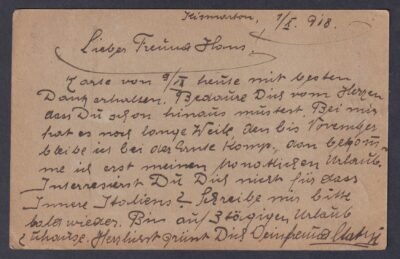 Kismarton, 1/X. 918.
Lieber Freund Hans
Karte von 9/IX heute mit besten
Dank erhalten. Bedaure Dich vom Herzen
das Du schon hinaus mustest. Bei mir
hat es noch lange Weile, den bis November
bleibe ich bei der Ernte Komp, dan bekom-
me ich erst meinen monatlichen Urlaub.
Interresierst Du Dich nicht für dass
Innere Italiens? Schreibe mir bitte
bald wieder. Bin auf 3 tägigen Urlaub
zuhause. Herzlichst grüsst Dich Dein freund